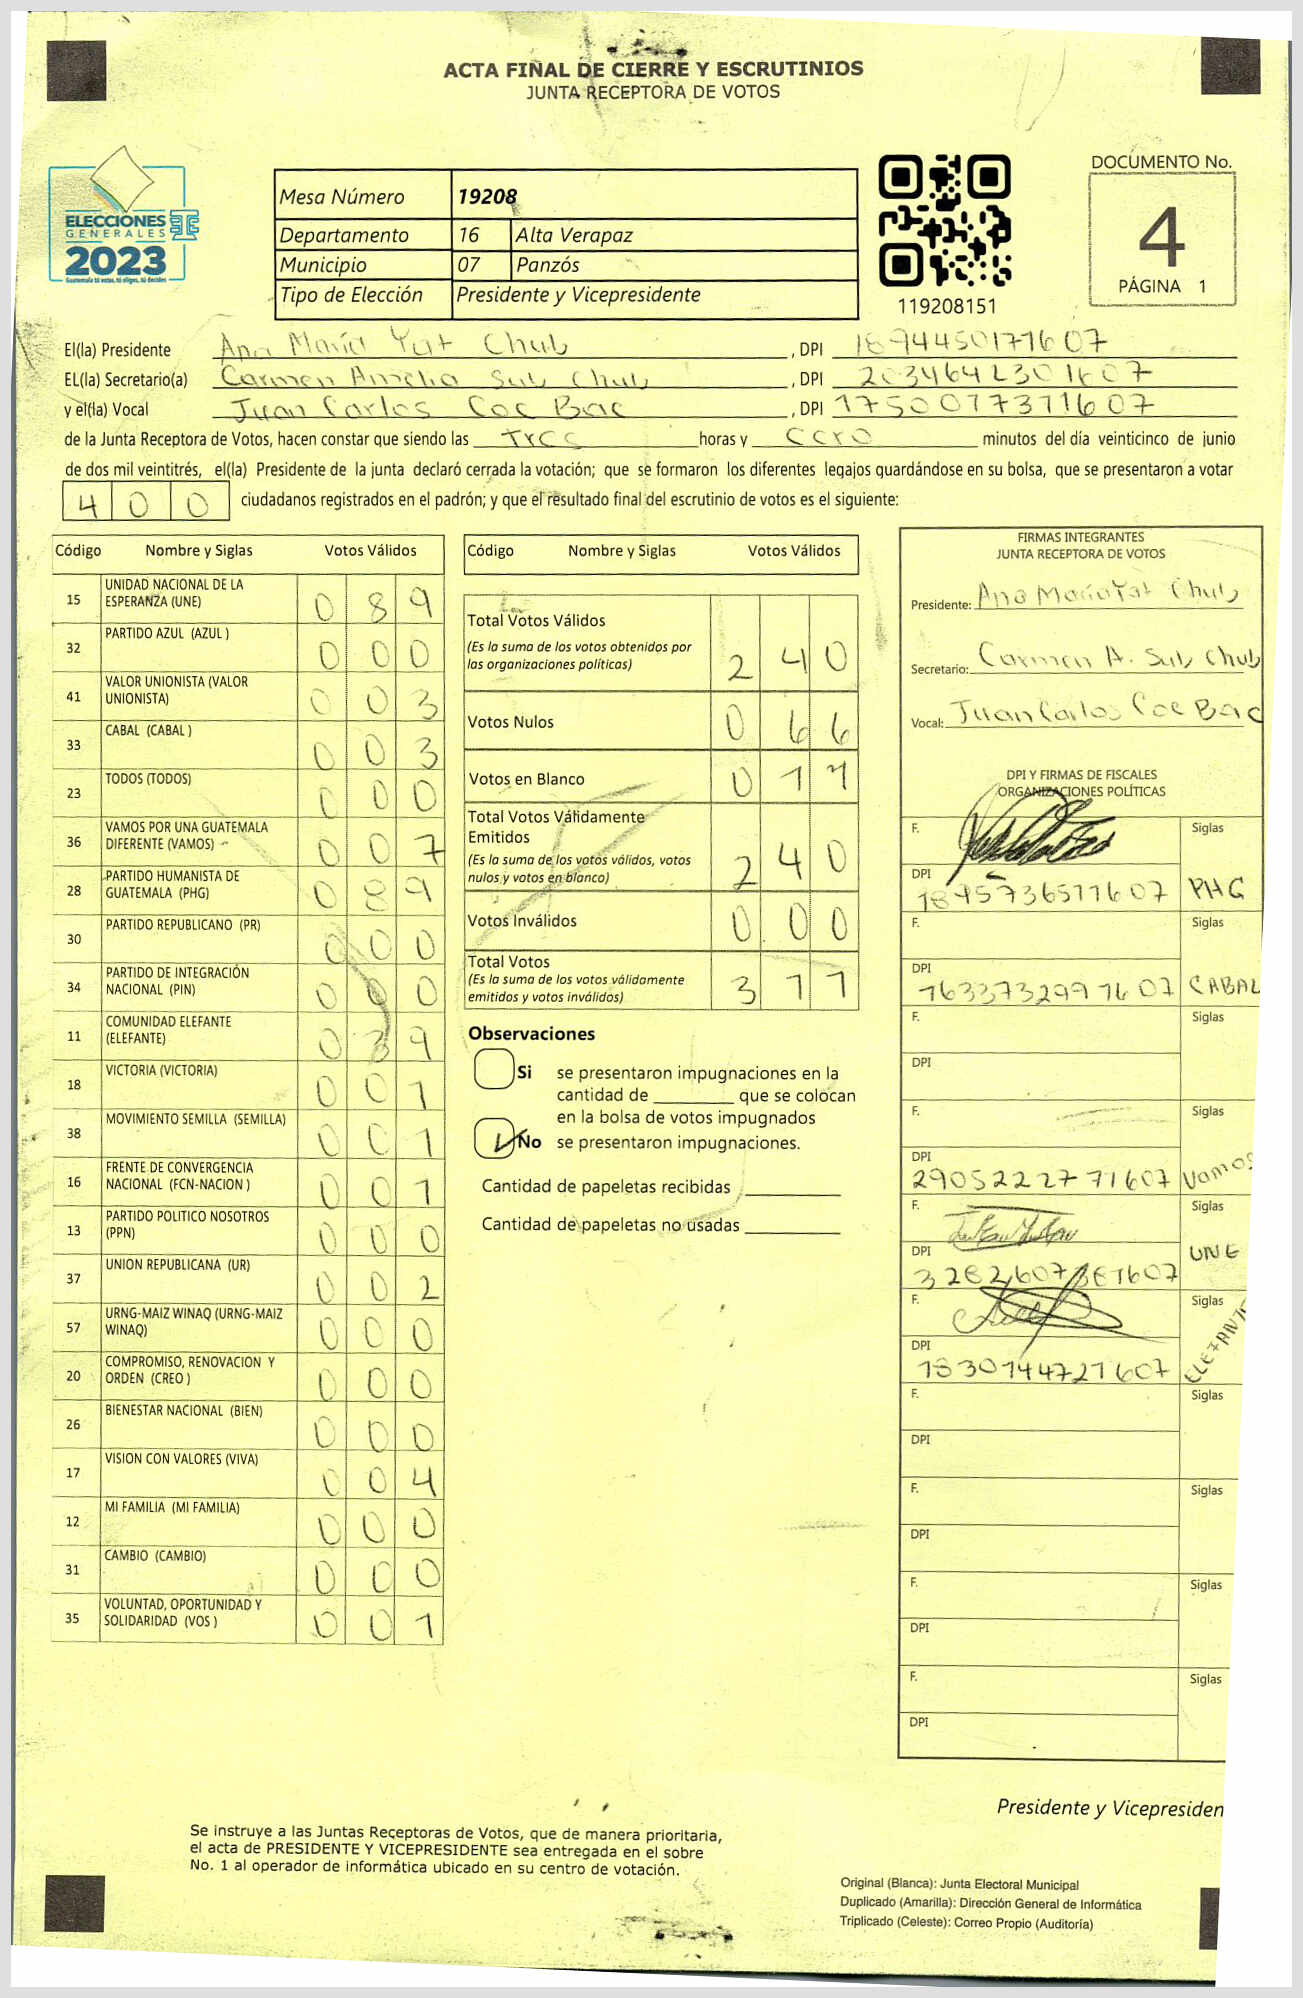 ACTA FINAL DE CIERRE Y ESCRUTINIOS
JUNTA RECEPTORA DE VOTOS
ELECCIONES
GENERALES
2023
Guatemala tú votas, tú eliges, tú decides
Mesa Número 19208
Departamento 16 Alta Verapaz
Municipio 07 Panzós
Tipo de Elección Presidente y Vicepresidente
119208151
DOCUMENTO No.
4
PÁGINA 1
El(la) Presidente Ana María Yat Chub , DPI 1894450171607
EL(la) Secretario(a) Carmen Amelia Sub Chub , DPI 2034642301607
y el(la) Vocal Juan Carlos Coc Bac , DPI 1750077371607
de la Junta Receptora de Votos, hacen constar que siendo las Tres horas y Cero minutos del día veinticinco de junio
de dos mil veintitrés, el(la) Presidente de la junta declaró cerrada la votación; que se formaron los diferentes legajos guardándose en su bolsa, que se presentaron a votar
400 ciudadanos registrados en el padrón; y que el resultado final del escrutinio de votos es el siguiente:
Código Nombre y Siglas Votos Válidos
15 UNIDAD NACIONAL DE LA ESPERANZA (UNE) 0 8 9
32 PARTIDO AZUL (AZUL ) 0 0 0
41 VALOR UNIONISTA (VALOR UNIONISTA) 0 0 3
33 CABAL (CABAL ) 0 0 3
23 TODOS (TODOS) 0 0 0
36 VAMOS POR UNA GUATEMALA DIFERENTE (VAMOS) 0 0 7
28 PARTIDO HUMANISTA DE GUATEMALA (PHG) 0 8 9
30 PARTIDO REPUBLICANO (PR) 0 0 0
34 PARTIDO DE INTEGRACIÓN NACIONAL (PIN) 0 0 0
11 COMUNIDAD ELEFANTE (ELEFANTE) 0 3 9
18 VICTORIA (VICTORIA) 0 0 1
38 MOVIMIENTO SEMILLA (SEMILLA) 0 0 1
16 FRENTE DE CONVERGENCIA NACIONAL (FCN-NACION ) 0 0 1
13 PARTIDO POLITICO NOSOTROS (PPN) 0 0 0
37 UNION REPUBLICANA (UR) 0 0 2
57 URNG-MAIZ WINAQ (URNG-MAIZ WINAQ) 0 0 0
20 COMPROMISO, RENOVACION Y ORDEN (CREO ) 0 0 0
26 BIENESTAR NACIONAL (BIEN) 0 0 0
17 VISION CON VALORES (VIVA) 0 0 4
12 MI FAMILIA (MI FAMILIA) 0 0 0
31 CAMBIO (CAMBIO) 0 0 0
35 VOLUNTAD, OPORTUNIDAD Y SOLIDARIDAD (VOS ) 0 0 1
Código Nombre y Siglas Votos Válidos
Total Votos Válidos 2 4 0
(Es la suma de los votos obtenidos por
las organizaciones políticas)
Votos Nulos 0 6 6
Votos en Blanco 0 1 1
Total Votos Válidamente
Emitidos 2 4 0
(Es la suma de los votos válidos, votos
nulos y votos en blanco)
Votos Inválidos 0 0 0
Total Votos 3 1 1
(Es la suma de los votos válidamente
emitidos y votos inválidos)
Observaciones
Si se presentaron impugnaciones en la
cantidad de ________ que se colocan
en la bolsa de votos impugnados
No se presentaron impugnaciones.
Cantidad de papeletas recibidas
Cantidad de papeletas no usadas
FIRMAS INTEGRANTES
JUNTA RECEPTORA DE VOTOS
Presidente: Ana María Yat Chub
Secretario: Carmen A. Sub Chub
Vocal: Juan Carlos Coc Bac
DPI Y FIRMAS DE FISCALES
ORGANIZACIONES POLÍTICAS
F. Siglas
DPI PHG
F. Siglas
DPI 1633732991607 CABAL
F. Siglas
DPI
F. Siglas
DPI 2905222771607 Vamos
F. Siglas
DPI UNE
F. Siglas
DPI 1830144721607 ELEFANTE
F. Siglas
DPI
F. Siglas
DPI
F. Siglas
DPI
F. Siglas
DPI
Presidente y Vicepresiden
Se instruye a las Juntas Receptoras de Votos, que de manera prioritaria,
el acta de PRESIDENTE Y VICEPRESIDENTE sea entregada en el sobre
No. 1 al operador de informática ubicado en su centro de votación.
Original (Blanca): Junta Electoral Municipal
Duplicado (Amarilla): Dirección General de Informática
Triplicado (Celeste): Correo Propio (Auditoría)